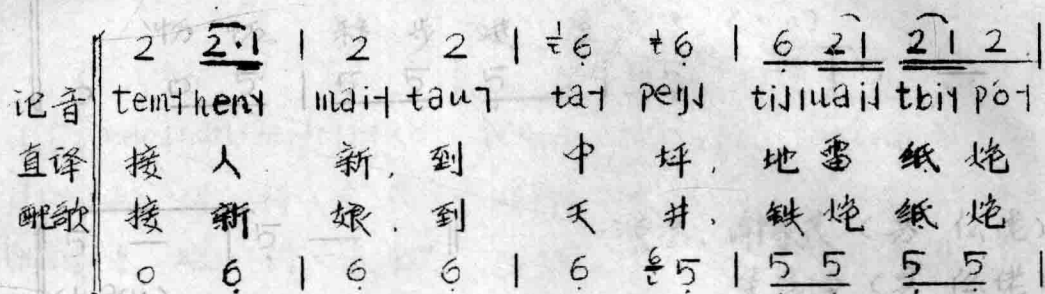 2 2·1 | 2 2 | 6 6 | 6 2 1 2 1 2 |
记音 tem˧ hen˦ mai˧ tau˥ ta˧
直译 接 人 新, 到 中 坪, 地 雷 纸 炮
配歌 接 新 娘, 到 天 井, 铁 炮 纸 炮
0 6 | 6 6 | 6 5 | 5 5 5 5 |